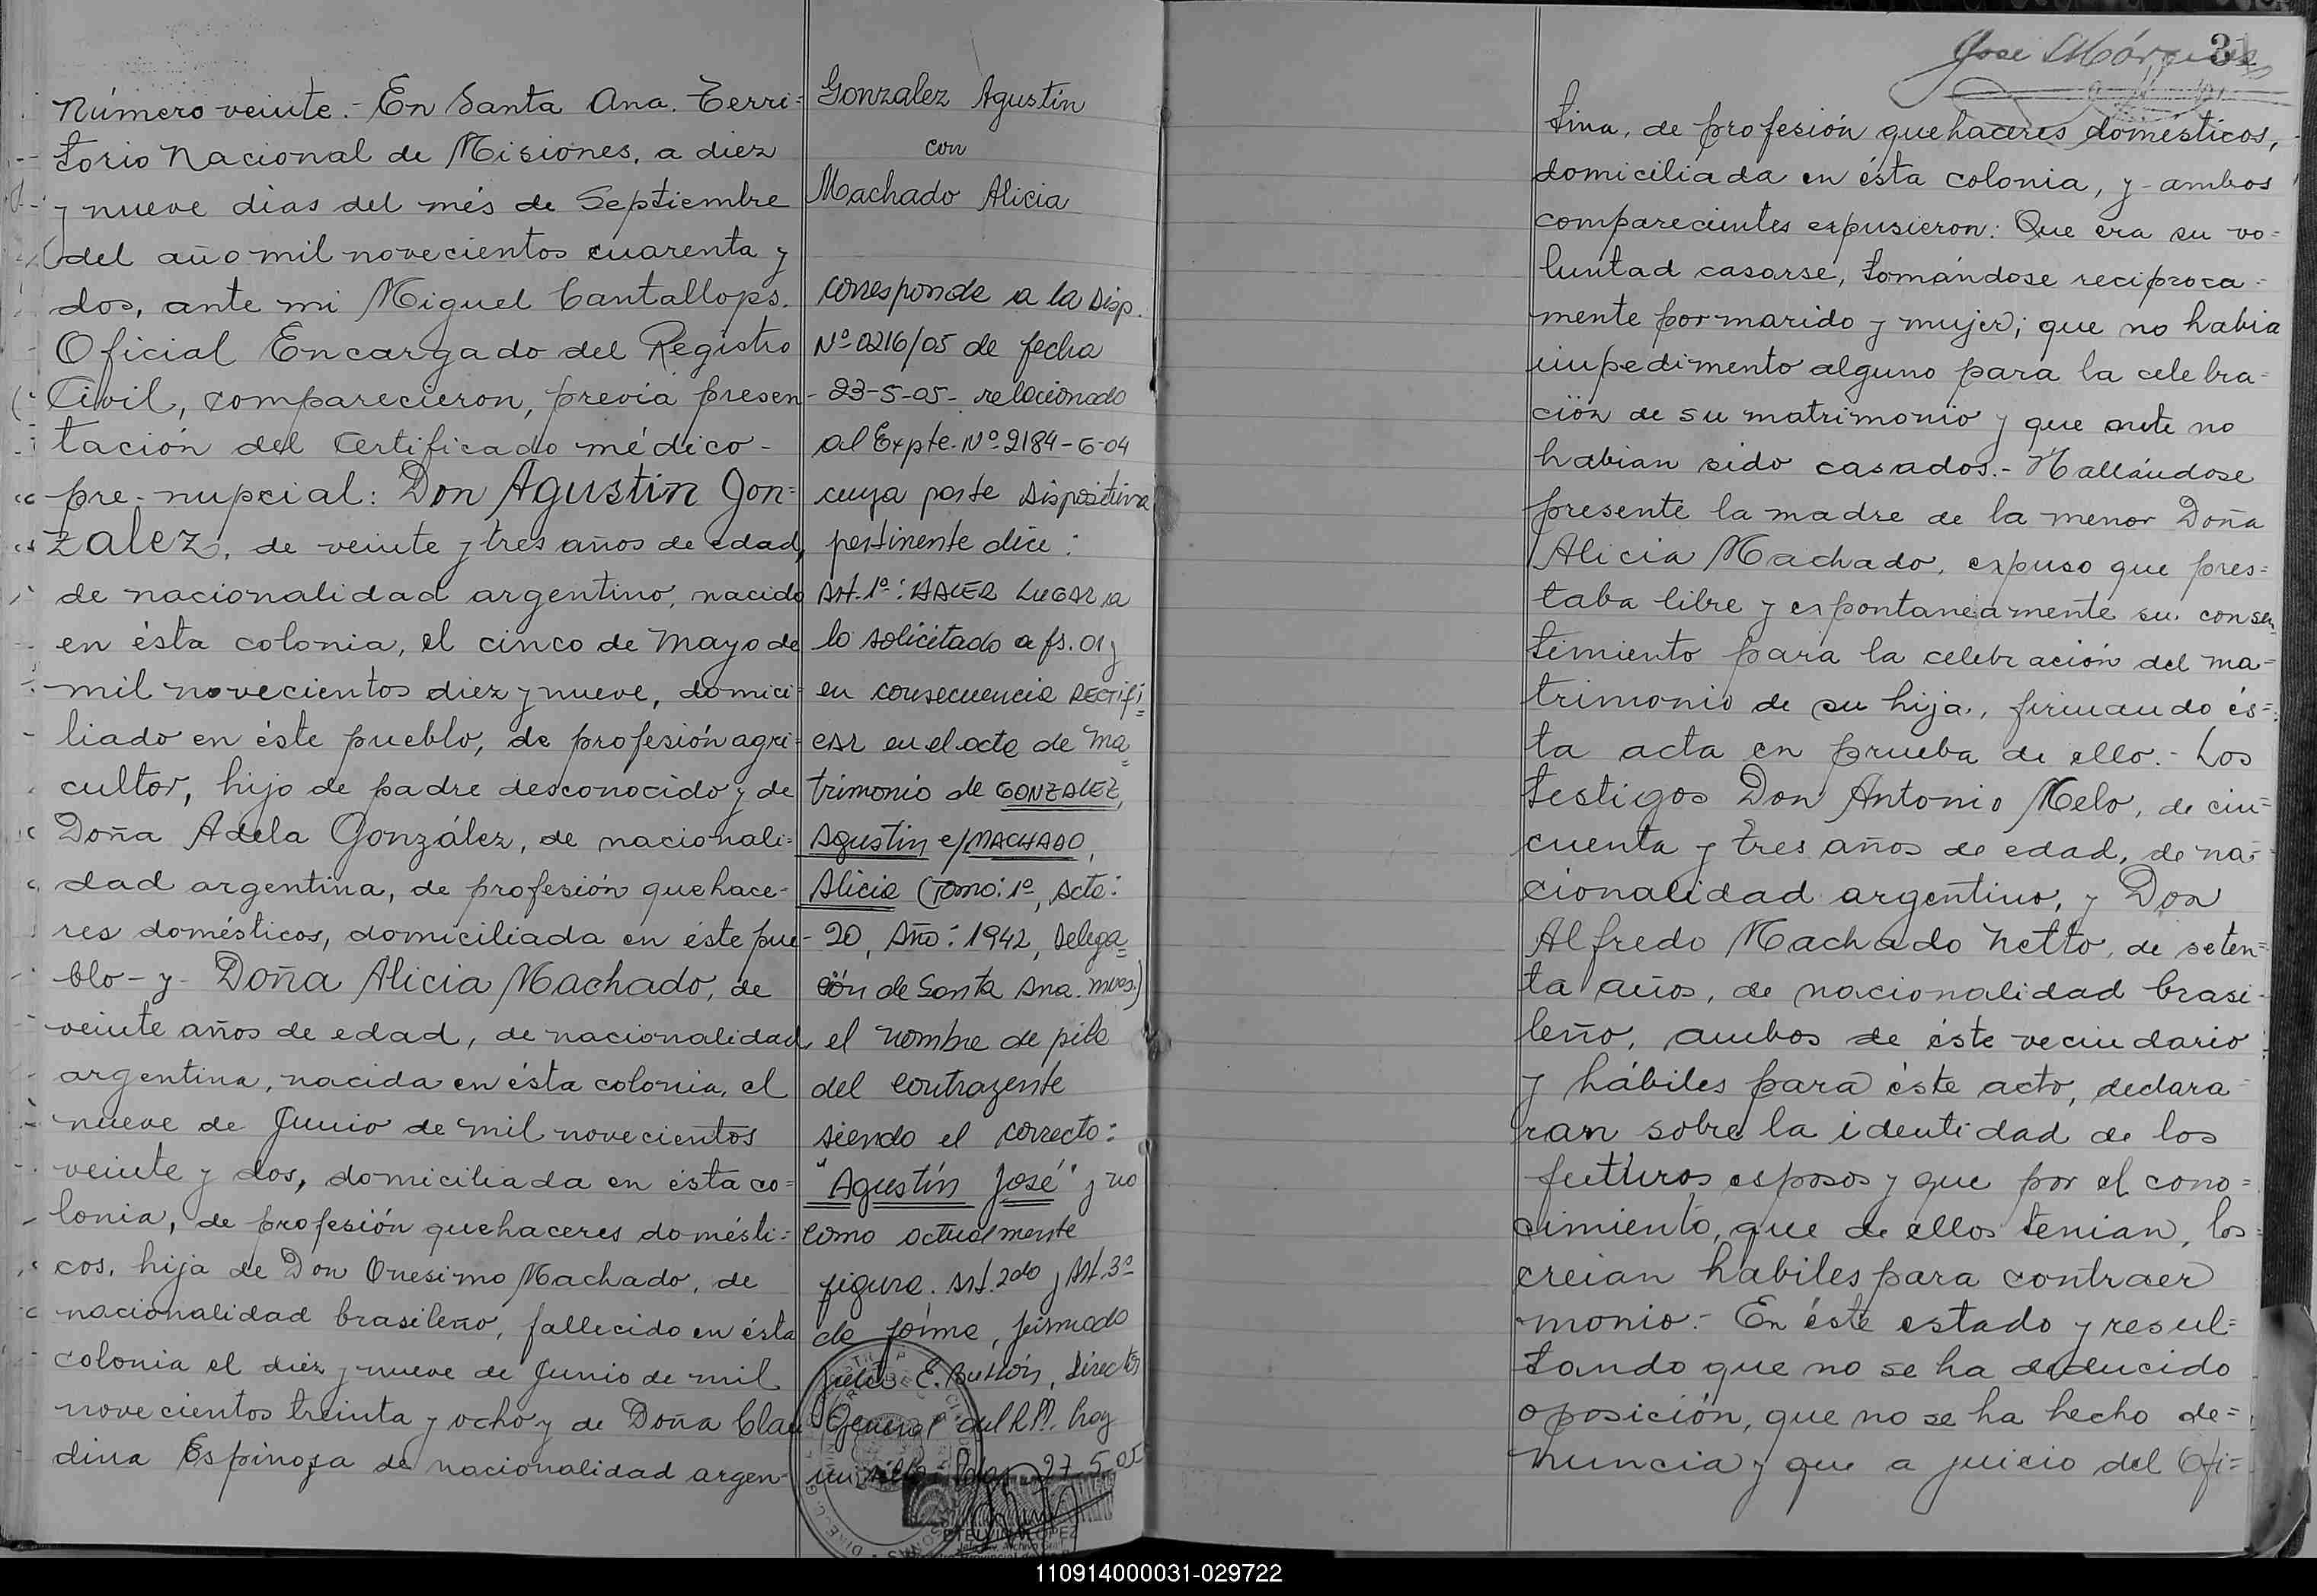 Número veinte.- En Santa Ana. Terri=
torio Nacional de Misiones, a diez
y nueve dias del més de Septiembre
del año mil novecientos cuarenta y
dos, ante mi Miguel Cantallops.
Oficial Encargado del Registro
Civil, comparecieron, previa presen-
tación del Certificado médico-
pre-nupcial: Don Agustin Gon=
zalez, de veinte y tres años de edad,
de nacionalidad argentino, nacido
en ésta colonia, el cinco de Mayo de
mil novecientos diez y nueve, domici=
liado en éste pueblo, de profesión agri=
cultor, hijo de padre desconocido y de
Doña Adela González, de nacionali=
dad argentina, de profesión quehace-
res domésticos, domiciliada en éste pue-
blo- y- Doña Alicia Machado, de
veinte años de edad, de nacionalidad
argentina, nacida en ésta colonia, el
nueve de Junio de mil novecientos
veinte y dos, domiciliada en ésta co=
lonia, de profesión quehaceres domésti=
cos, hija de Don Onesimo Machado, de
nacionalidad brasileño, fallecido en ésta
colonia el diez y nueve de Junio de mil
novecientos treinta y ocho y de Doña Clau-
dina Espinoza de nacionalidad argen-
Gonzalez Agustin
con
Machado Alicia
corresponde a la Disp.
Nº 0216/05 de fecha
23-5-05- relacionado
al Expte. Nº 2184-6-04
cuya parte Dispositiva
pertinente dice:
Art. 1º: HACER LUGAR a
lo solicitado a fs. 01 y
en consecuencia RECTIFI
CAR en el acta de Ma
trimonio de GONZALEZ,
Agustin c/MACHADO,
Alicia (Tomo: 1º, Acta:
20, Año: 1942, Delega
ción de Santa Ana. Mnes.)
el nombre de pila
del contrayente
siendo el correcto:
"Agustín José" y no
como actualmente
figura. Art. 2do y Art. 3º
de forma, firmado
Julio E. Buttón, Director
General del R.P.P. hoy
27-5-05
ETELVINA LOPEZ
José Márquez
3
tina, de profesión quehaceres domésticos,
domiciliada en ésta colonia, y- ambos
comparecientes expusieron: Que era su vo=
luntad casarse, tomándose reciproca=
mente por marido y mujer; que no habia
impedimento alguno para la celebra=
ción de su matrimonio y que ante no
habian sido casados.- Hallándose
presente la madre de la menor Doña
Alicia Machado, expuso que pres=
taba libre y espontaneamente su consen
timiento para la celebración del ma=
trimonio de su hija, firmando és=
ta acta en prueba de ello.- Los
testigos Don Antonio Melo, de cin=
cuenta y tres años de edad, de na=
cionalidad argentino, y Don
Alfredo Machado Netto, de seten=
ta años, de nacionalidad brasi-
leño, ambos de éste vecindario
y hábiles para éste acto, declara=
ran sobre la identidad de los
futuros esposos y que por el cono=
cimiento, que de ellos tenian, los=
creian habiles para contraer
monio.- En éste estado y resul=
tando que no se ha deducido
oposición, que no se ha hecho de=
nuncia y que a juicio del Ofi=
110914000031-029722